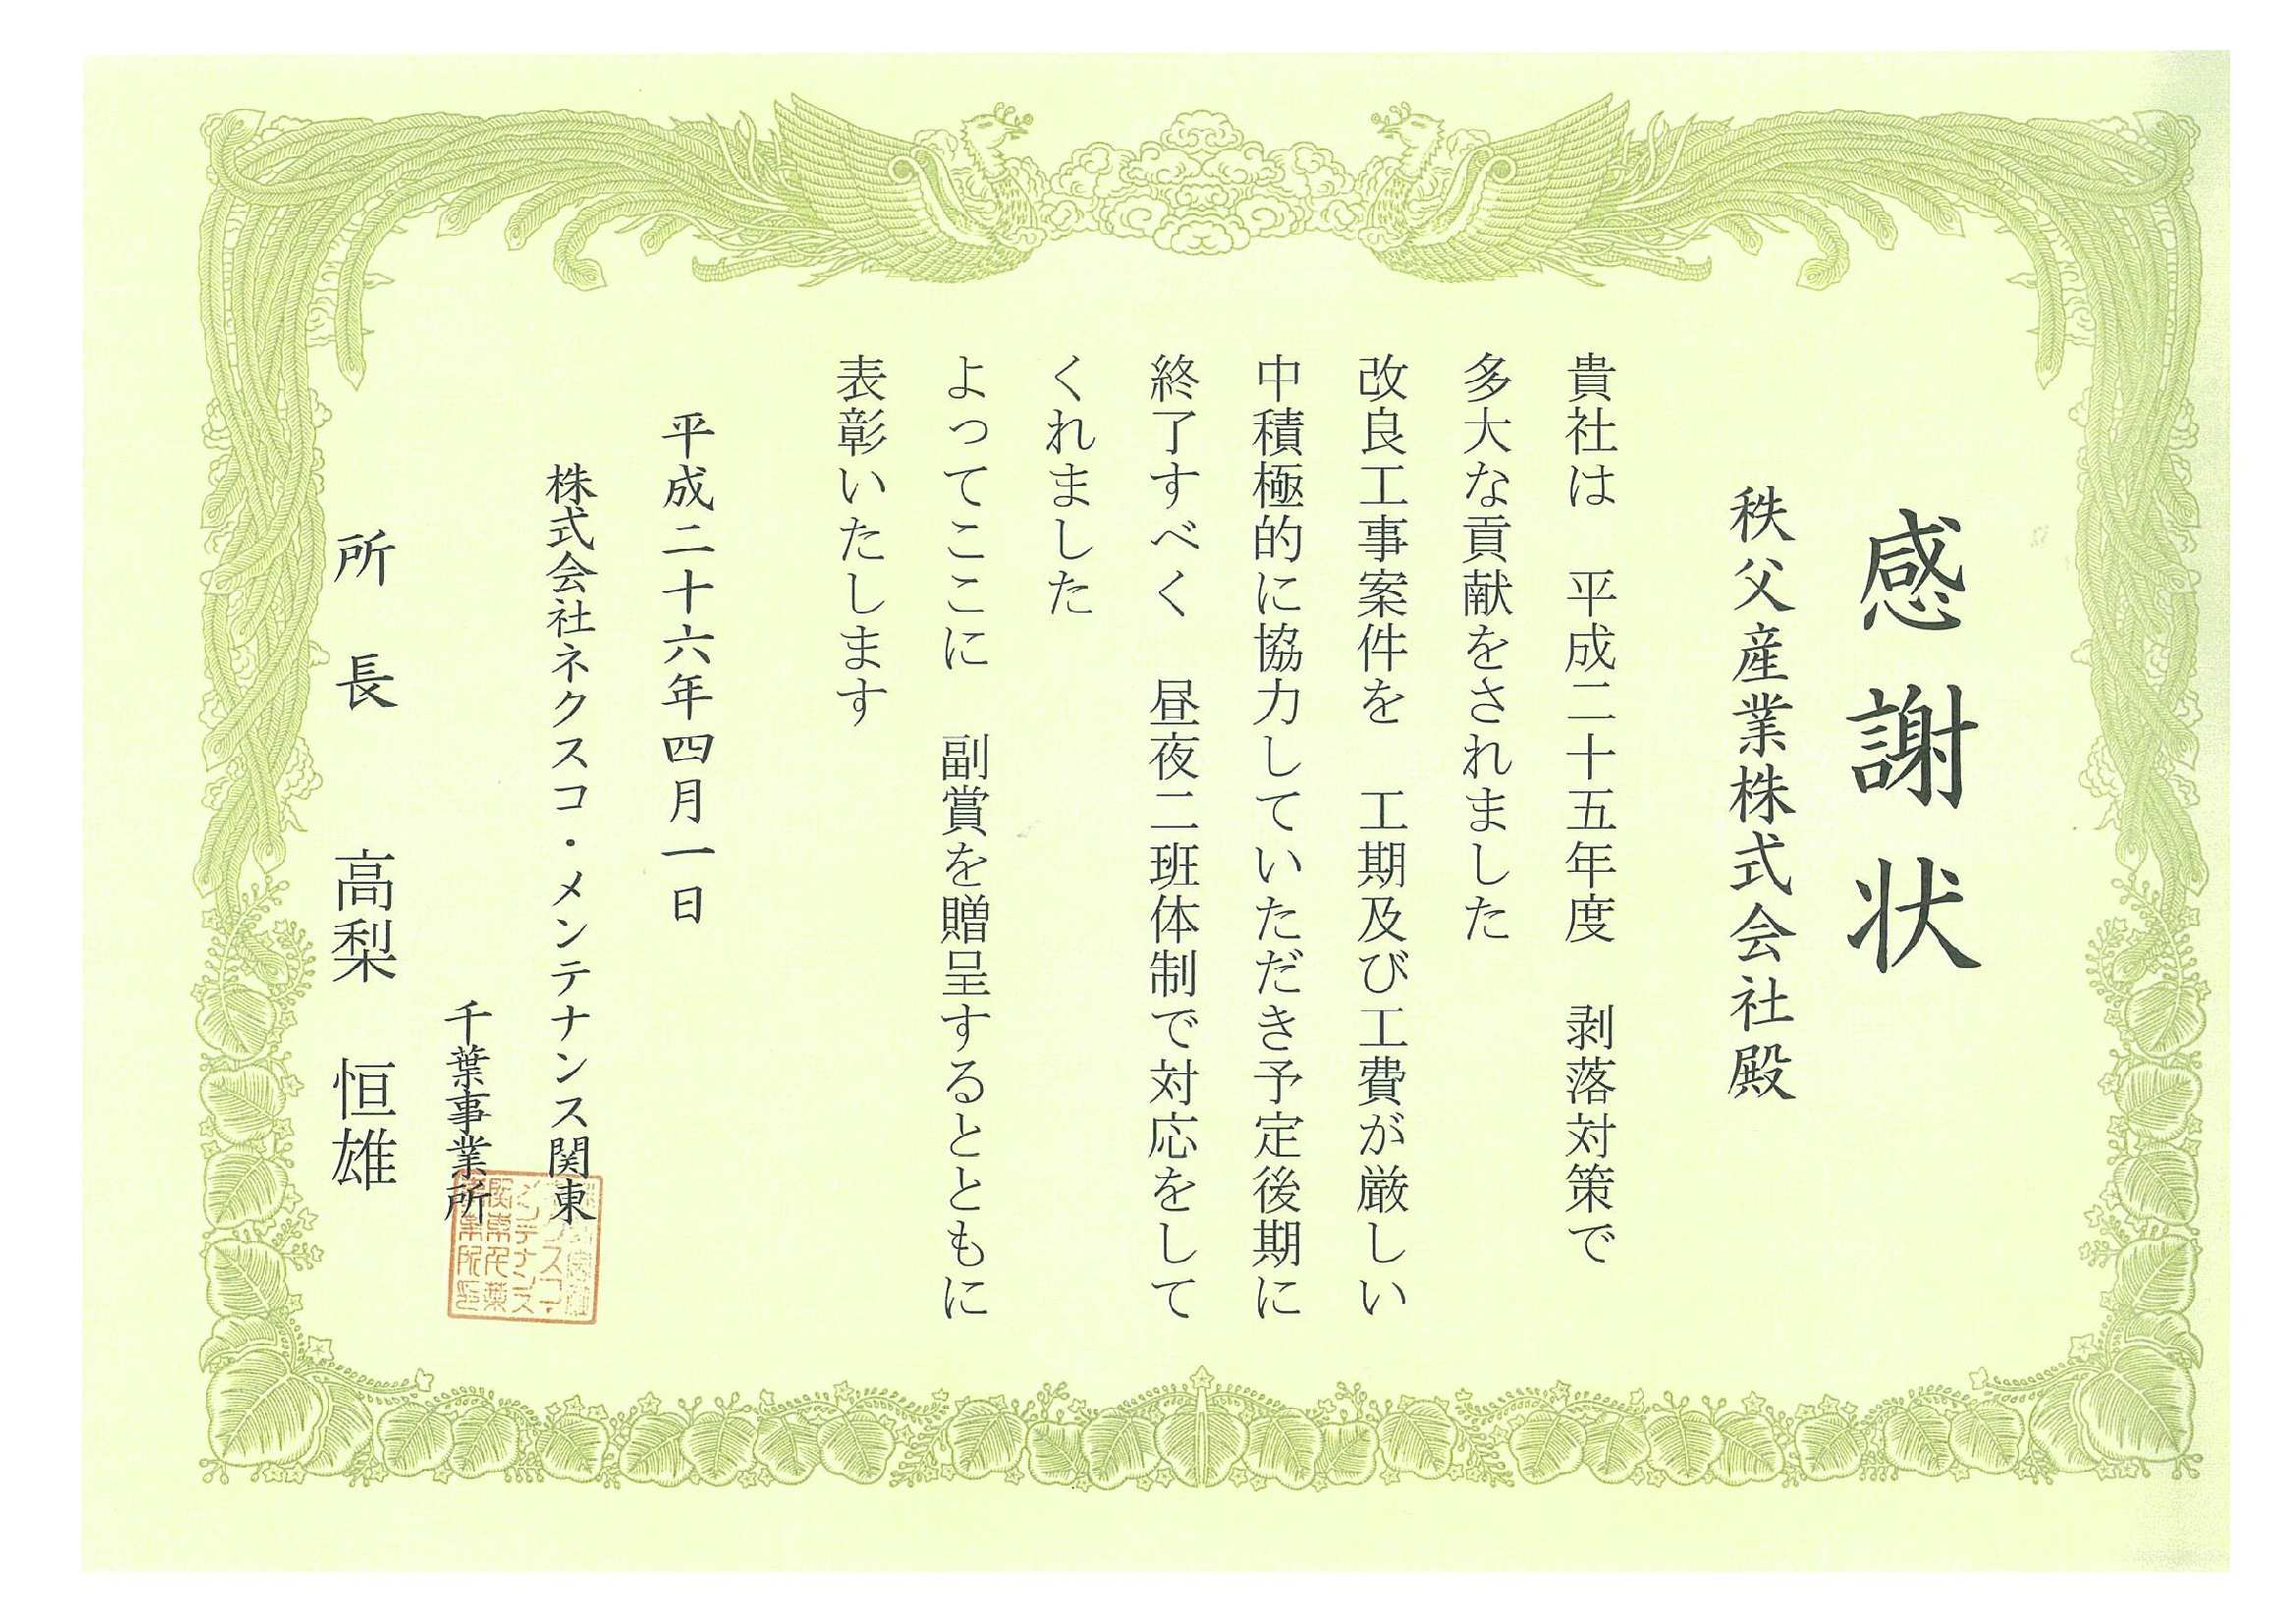 感謝状
秩父産業株式会社殿
貴社は　平成二十五年度　剥落対策で
多大な貢献をされました
改良工事案件を　工期及び工費が厳しい
中積極的に協力していただき予定後期に
終了すべく　昼夜二班体制で対応をして
くれました
よってここに　副賞を贈呈するとともに
表彰いたします
平成二十六年四月一日
株式会社ネクスコ・メンテナンス関東
千葉事業所
所長　高梨　恒雄